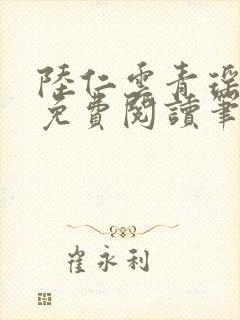 陸仁雲青瑤
免費閱讀筆
崔永利